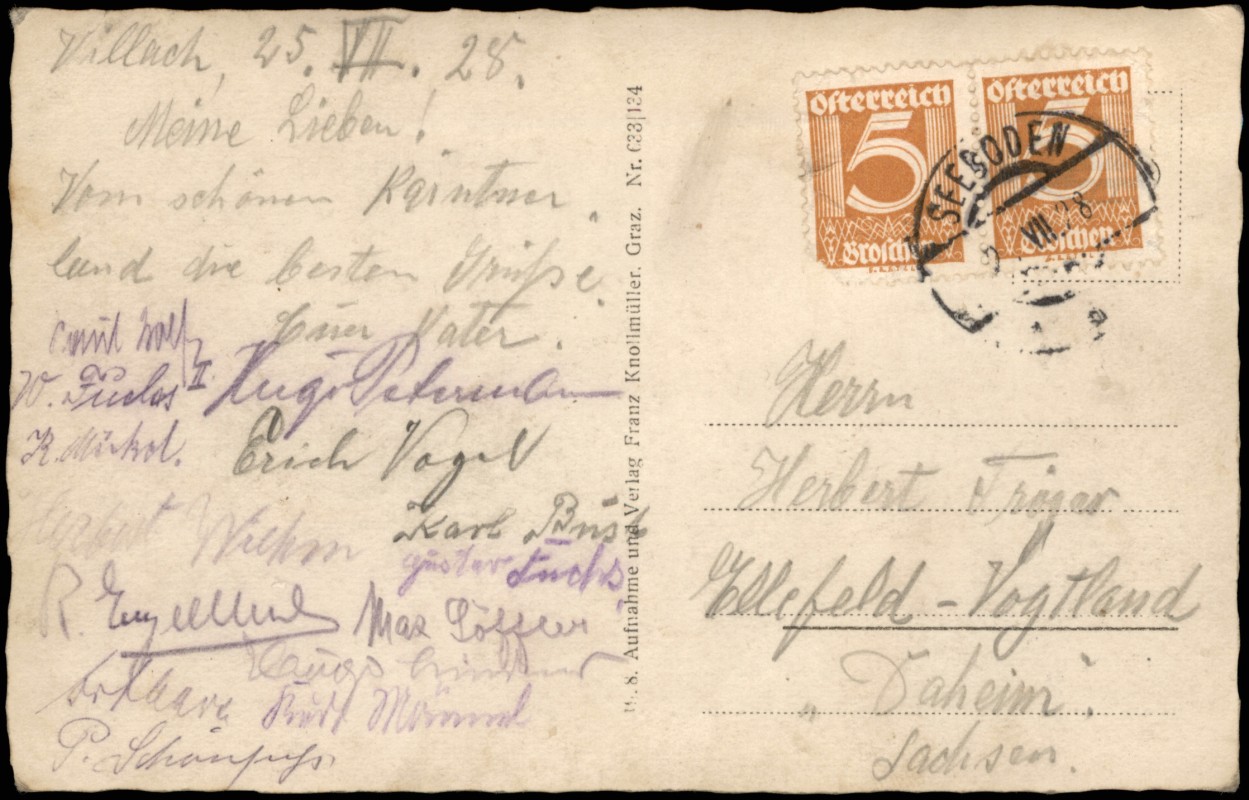 Villach, 25. VII. 28.
Meine Lieben!
Vom schönen Kärntner
land die besten Grüße.
Euer Vater.
Emil Wolf
W. Fuchs II Hugo Petermann
K.
Erich Vogel
Herbert Wilhm
Karl
Gustav Fuchs
R. Max Löffler
Hugo
Kurt
P.
W. 8. Aufnahme und Verlag Franz Knollmüller. Graz. Nr. 633|134
Österreich Österreich
5 5
Groschen Groschen
SEEBODEN
VII 28
Herrn
Herbert Tröger
Ellefeld - Vogtland
„Daheim".
Sachsen.